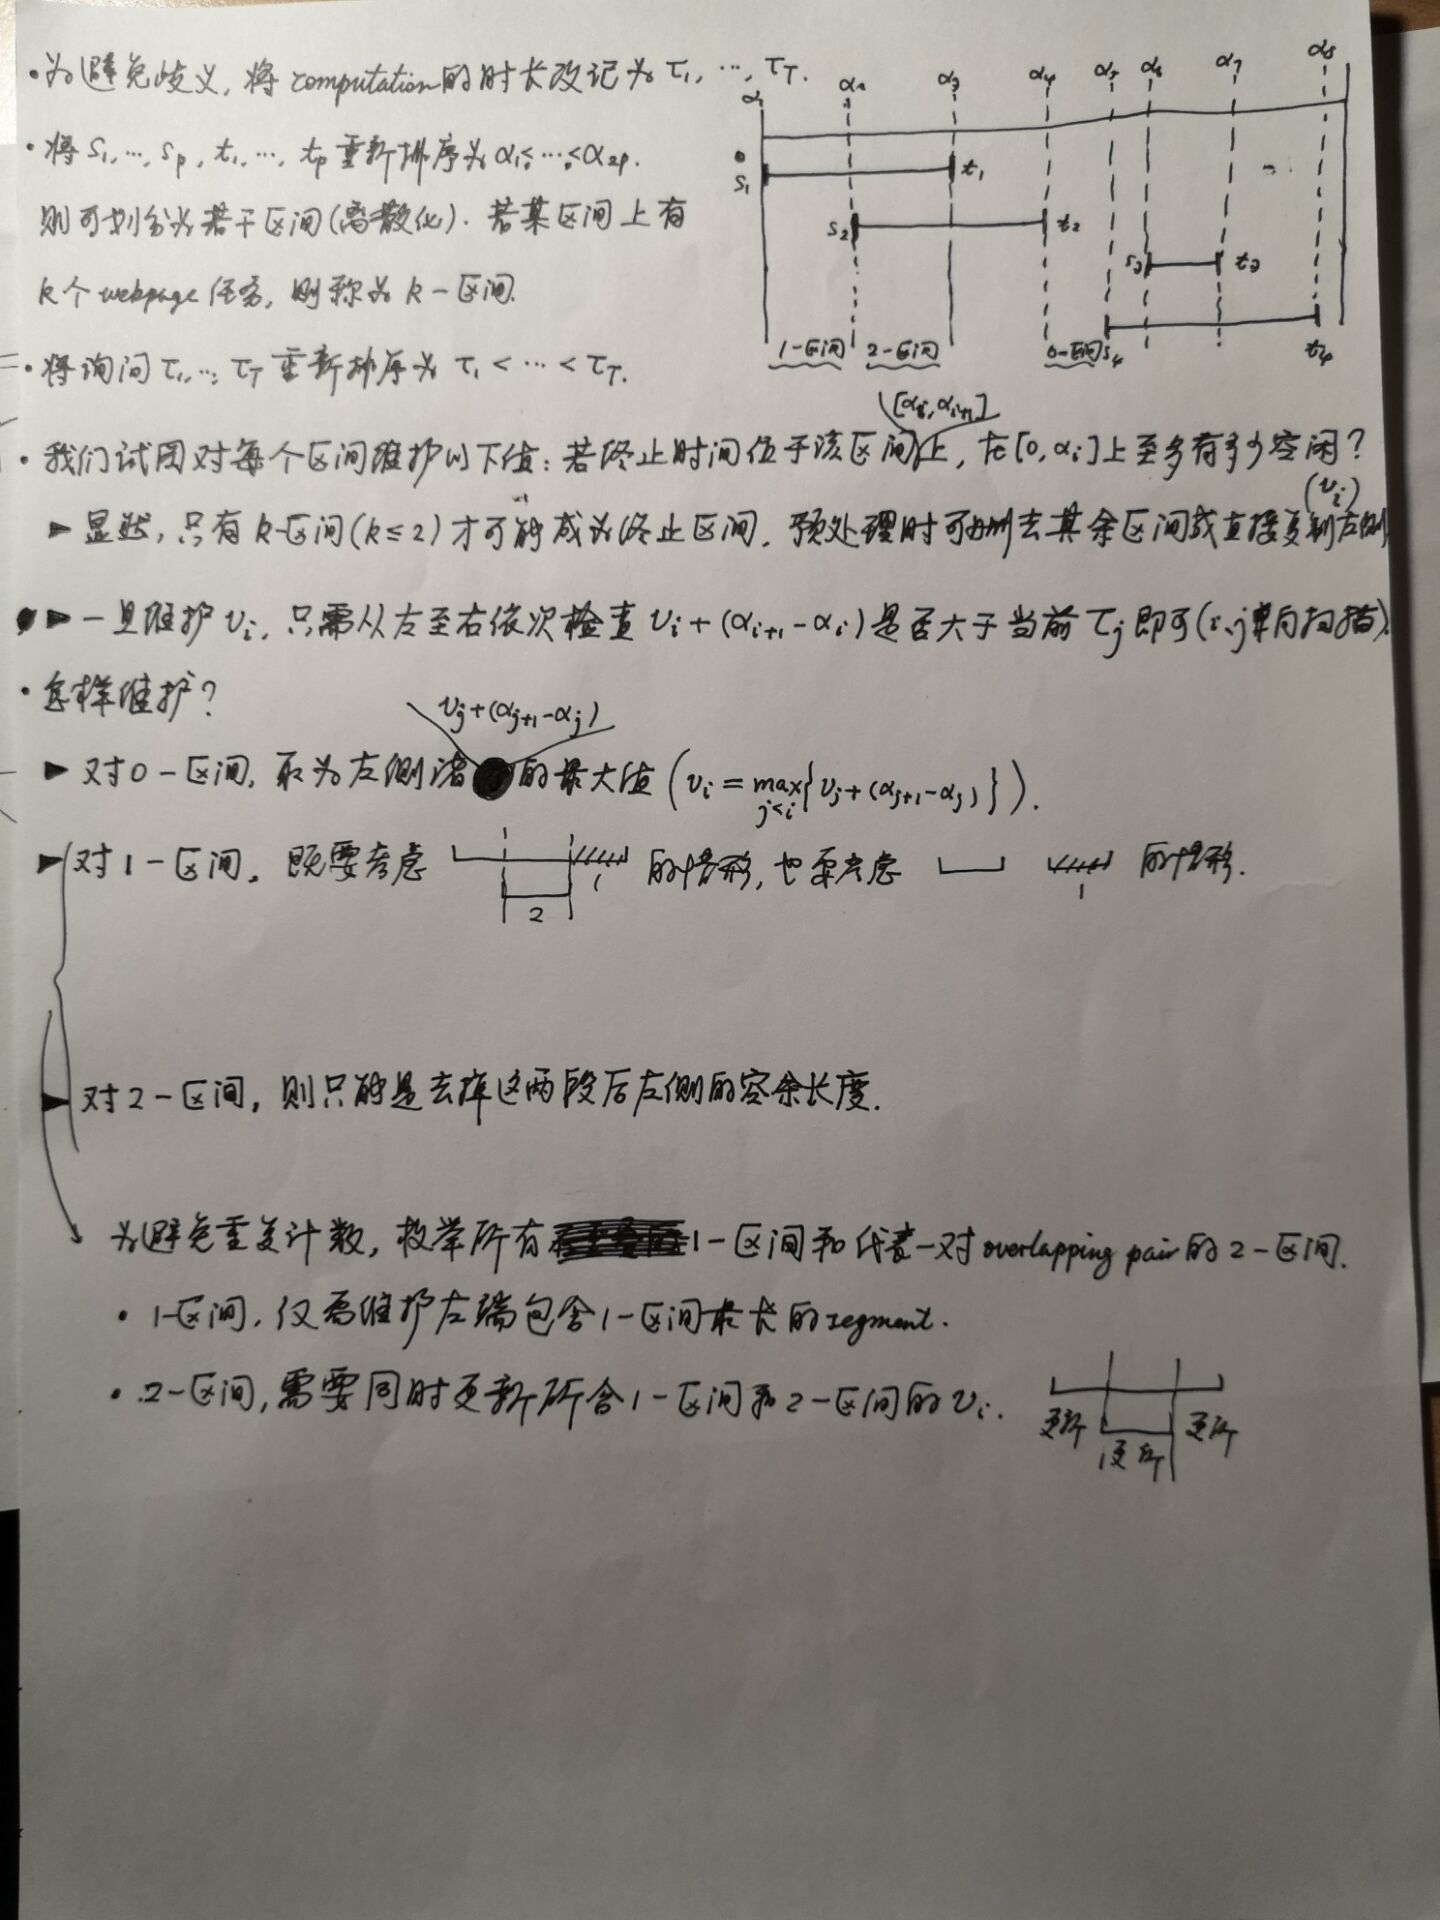 · 为避免歧义, 将 computation 的时长改记为 τ₁, …, τ_T.
· 将 s₁, …, s_p, t₁, …, t_p 重新排序为 α₁ ≤ … ≤ α_{2p}.
则可划分为若干区间(离散化). 若某区间上有
k个 webpage 任务, 则称为 k-区间.
· 将询问 τ₁, …, τ_T 重新排序为 τ₁ < … < τ_T.
α₁ α₂ α₃ α₄ α₅ α₆ α₇ α₈
s₁ t₁
s₂ t₂
s₃ t₃
s₄ t₄
1-区间 2-区间 0-区间
[αᵢ, αᵢ₊₁]
· 我们试图对每个区间维护以下值: 若终止时间位于该区间上, 在[0, αᵢ]上至多有多少空闲?
(vᵢ)
▶ 显然, 只有 k-区间(k≤2)才可能成为终止区间, 预处理时可删去其余区间或直接复制左侧
▶ 一旦维护 vᵢ, 只需从左至右依次检查 vᵢ + (αᵢ₊₁ - αᵢ) 是否大于当前 τⱼ 即可(i, j单向扫描).
· 怎样维护?
vⱼ + (αⱼ₊₁ - αⱼ)
▶ 对0-区间, 取为左侧诸 的最大值 (vᵢ = max_{j<i} {vⱼ + (αⱼ₊₁ - αⱼ)}).
▶ 对1-区间, 既要考虑 的情形, 也要考虑 的情形.
2 1 1
▶ 对2-区间, 则只能是去掉这两段后左侧的空余长度.
为避免重复计数, 枚举所有 1-区间和代表一对 overlapping pair 的 2-区间.
· 1-区间, 仅需维护左端包含1-区间最长的 segment.
· 2-区间, 需要同时更新所含1-区间和2-区间的 vᵢ.
更新 更新 更新